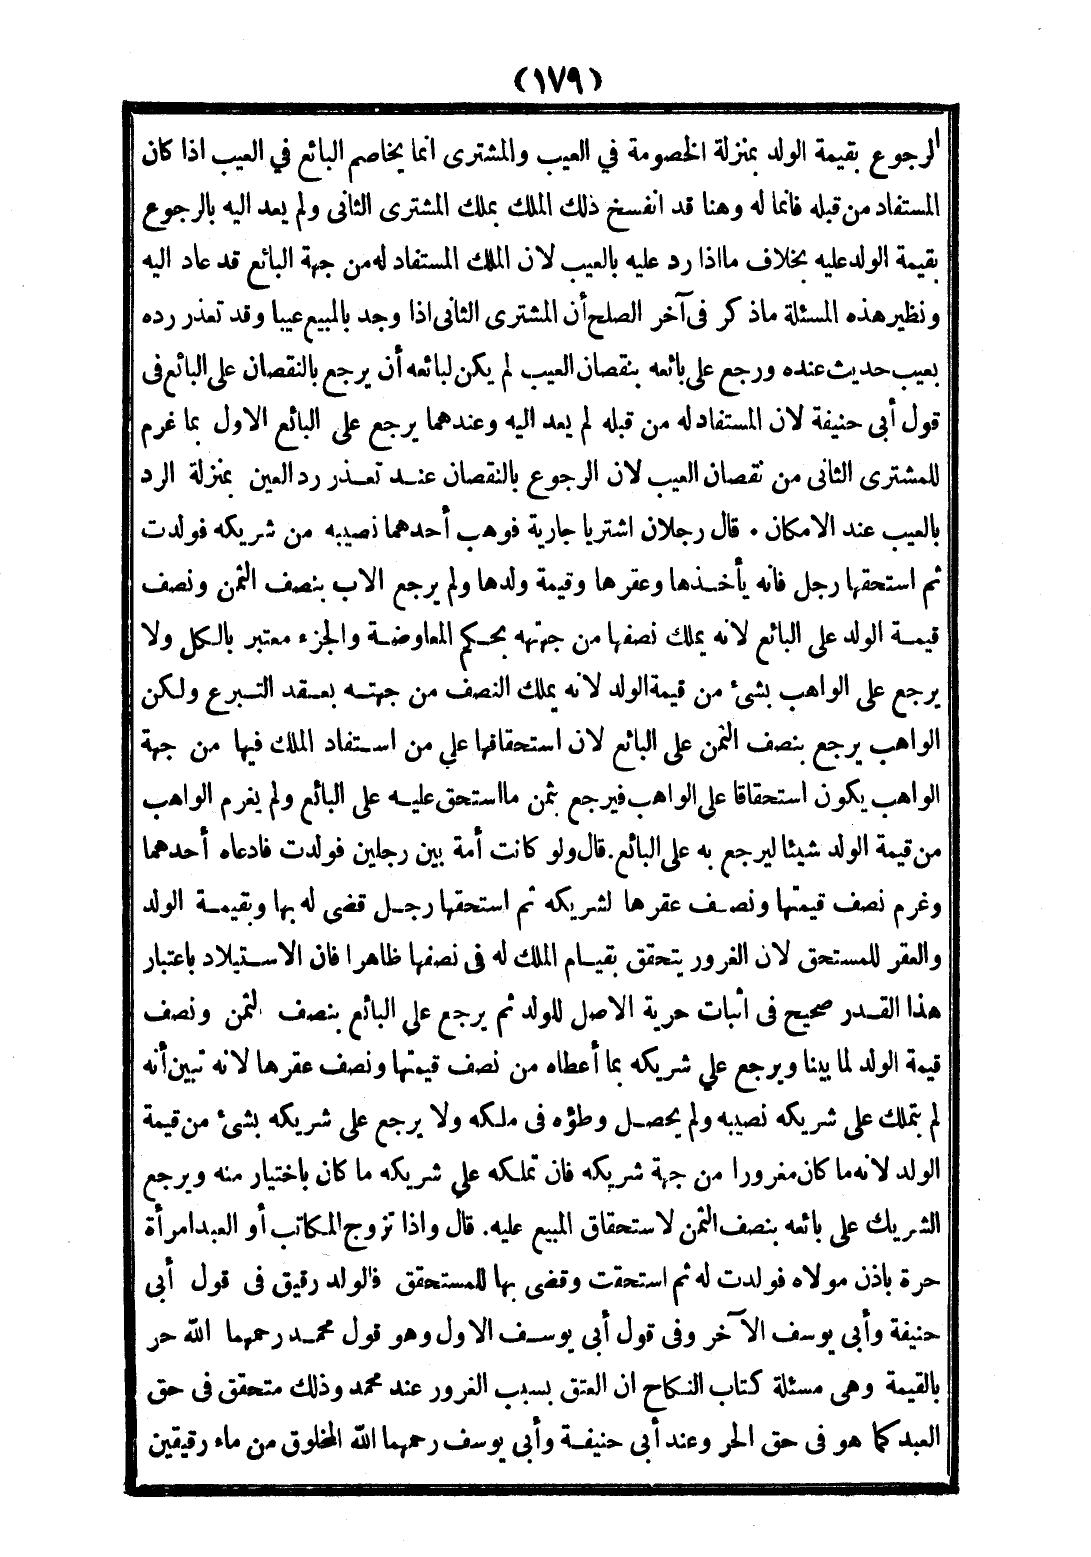 (١٧٩)
الرجوع بقيمة الولد بمنزلة الخصومة في العيب والمشترى انما يخاصم البائع في العيب اذا كان
المستفاد من قبله قائما له وهنا قد انفسخ ذلك الملك بملك المشترى الثانى ولم يعد اليه بالرجوع
بقيمة الولد عليه بخلاف ما اذا رد عليه بالعيب لان الملك المستفاد له من جهة البائع قد عاد اليه
ونظير هذه المسئلة ماذكر فى آخر الصلح أن المشترى الثانى اذا وجد بالمبيع عيبا وقد تعذر رده
بعيب حديث عنده ورجع على بائعه بنقصان العيب لم يكن لبائعه أن يرجع بالنقصان على البائع فى
قول أبى حنيفة لان المستفاد له من قبله لم يعد اليه وعندهما يرجع على البائع الاول بما غرم
للمشترى الثانى من نقصان العيب لان الرجوع بالنقصان عند تعذر رد العين بمنزلة الرد
بالعيب عند الامكان . قال رجلان اشتريا جارية فوهب أحدهما نصيبه من شريكه فولدت
ثم استحقها رجل فانه يأخذها وعقرها وقيمة ولدها ولم يرجع الاب بنصف الثمن ونصف
قيمة الولد على البائع لانه يملك نصفها من جهته بحكم المعاوضة والجزء معتبر بالكل ولا
يرجع على الواهب بشئ من قيمة الولد لانه يملك النصف من جهته بعقد التبرع ولكن
الواهب يرجع بنصف الثمن على البائع لان استحقاقها علي من استفاد الملك فيها من جهة
الواهب يكون استحقاقا على الواهب فيرجع بثمن ما استحق عليه على البائع ولم يغرم الواهب
من قيمة الولد شيئا ليرجع به على البائع . قال ولو كانت أمة بين رجلين فولدت فادعاه أحدهما
وغرم نصف قيمتها ونصف عقرها لشريكه ثم استحقها رجل قضى له بها وبقيمة الولد
والعقر للمستحق لان الغرور يتحقق بقيام الملك له فى نصفها ظاهرا فان الاستيلاد باعتبار
هذا القدر صحيح فى اثبات حرية الاصل للولد ثم يرجع علي البائع بنصف الثمن ونصف
قيمة الولد لما بينا ويرجع علي شريكه بما أعطاه من نصف قيمتها ونصف عقرها لانه تبين أنه
لم يتملك على شريكه نصيبه ولم يحصل وطؤه فى ملكه ولا يرجع على شريكه بشئ من قيمة
الولد لانه ما كان مغرورا من جهة شريكه فان تملكه علي شريكه ما كان باختيار منه ويرجع
الشريك على بائعه بنصف الثمن لاستحقاق المبيع عليه . قال واذا تزوج المكاتب أو العبد امرأة
حرة باذن مولاه فولدت له ثم استحقت وقضى بها للمستحقق فالولد رقيق فى قول أبى
حنيفة وأبى يوسف الآخر وفى قول أبى يوسف الاول وهو قول محمد رحمهما الله حر
بالقيمة وهى مسئلة كتاب النكاح ان العتق بسبب الغرور عند محمد وذلك متحقق فى حق
العبد كما هو فى حق الحر وعند أبى حنيفة وأبى يوسف رحمهما الله المخلوق من ماء رقيقين